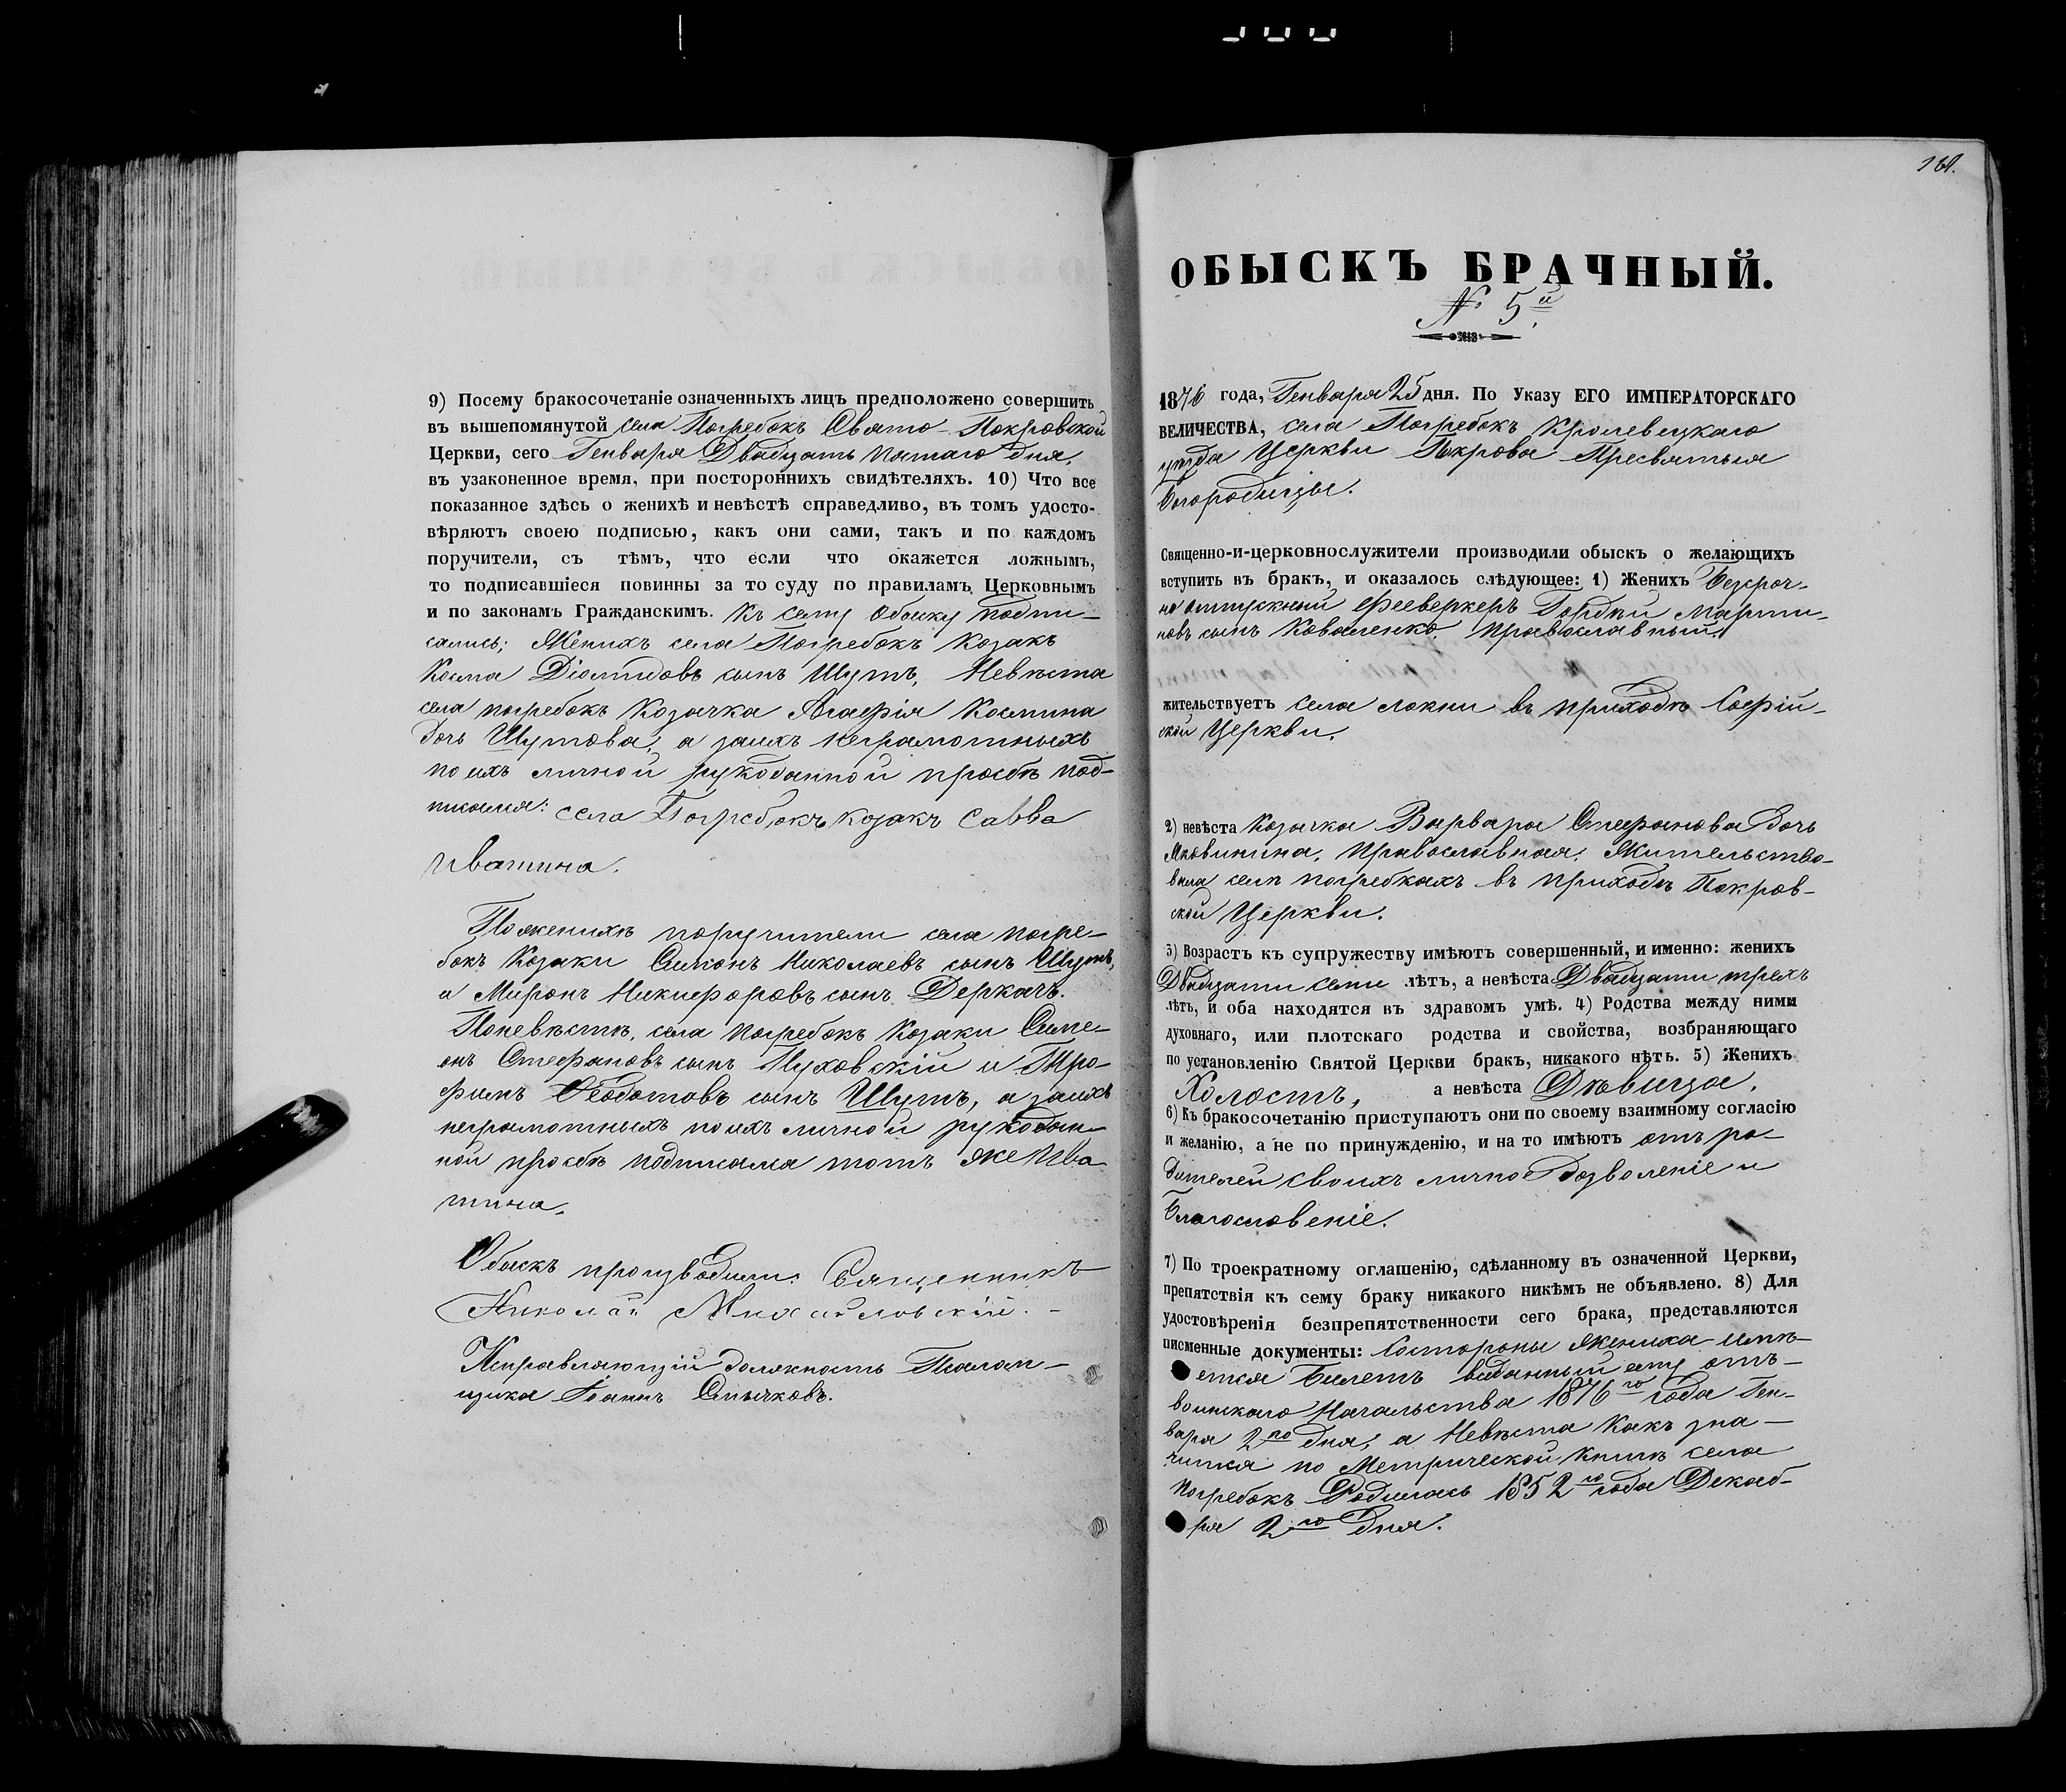 9) Посему бракосочетаніе означенныхъ лицъ предположено совершить
въ вышепомянутой села Погребокъ Свято-Покровской
Церкви, сего Генваря Двадцать пятаго дня,
въ узаконенное время, при постороннихъ свидѣтеляхъ. 10) Что все
показанное здѣсь о женихѣ и невѣстѣ справедливо, въ томъ удосто-
вѣряютъ своею подписью, какъ они сами, такъ и по каждомъ
поручители, съ тѣмъ, что если что окажется ложнымъ,
то подписавшіеся повинны за то суду по правиламъ Церковнымъ
и по законамъ Гражданскимъ. Къ сему обыску подпи-
сались; Женихъ села Погребокъ Козакъ
Косма Діомидовъ сынъ Шутъ, Невѣста
села погребокъ Козачка Агафія Космина
дочь Шутова, а заихъ неграмотныхъ
по ихъ личной рукоданной просбѣ под-
писался: села Погребокъ козакъ Савва
Ивашина.
Поженихѣ поручители села погре-
бокъ Козаки Симонъ Николаевъ сынъ Шутъ,
и Миронъ Никифоровъ сынъ Деркачъ.
Поневѣстѣ, села погребокъ Козаки Симе-
онъ Стефановъ сынъ Пуховскій и Тро-
фимъ Ѳеодотовъ сынъ Шутъ, а заихъ
неграмотныхъ по ихъ личной рукодан-
ной просбѣ подписался тотъ же Ива-
шина.
Обыскъ производили: Священникъ
Николай Михайловскій. -
Исправляющій должность Псалом-
щика Іоаннъ Смычковъ.
ОБЫСКЪ БРАЧНЫЙ.
№ 5й
1876 года, Генваря 25 дня. По Указу ЕГО ИМПЕРАТОРСКАГО
ВЕЛИЧЕСТВА, села Погребокъ Кролевецкаго
уѣзда Церкви Покрова Пресвятыя
Богородицы.
Священно-и-церковнослужители производили обыскъ о желающихъ
вступить въ бракъ, и оказалось слѣдующее: 1) Женихъ Безсроч-
но отпускный Фееверкеръ Гордѣй Марти-
новъ сынъ Коваленко, православный,
жительствуетъ села Локни въ приходѣ Софій-
ской Церкви.
2) невѣста Козачка Варвара Стефанова дочь
православная, Жительство-
вала селѣ погребкахъ въ приходѣ Покров-
ской Церкви.
3) Возрастъ къ супружеству имѣютъ совершенный, и именно: женихъ
Двадцати семи лѣтъ, а невѣста Двадцати трехъ
лѣтъ, и оба находятся въ здравомъ умѣ. 4) Родства между ними
духовнаго, или плотскаго родства и свойства, возбраняющаго
по установленію Святой Церкви бракъ, никакого нѣтъ. 5) Женихъ
Холостъ, а невѣста Дѣвица.
6) Къ бракосочетанію приступаютъ они по своему взаимному согласію
и желанію, а не по принужденію, и на то имѣютъ отъ ро-
дителей своихъ личное Дозволеніе и
Благословеніе.
7) По троекратному оглашенію, сдѣланному въ означенной Церкви,
препятствія къ сему браку никакого никѣмъ не объявлено. 8) Для
удостовѣренія безпрепятственности сего брака, представляются
писменные документы: Состороны Жениха имѣ-
ется Билетъ виданный ему отъ-
воинскаго Начальства 1876го года Ген-
варя 2го дня; а Невѣста Какъ зна-
чится по Метрической Книгѣ села
погребокъ Родилась 1852го года Декаб-
ря 2го Дня.